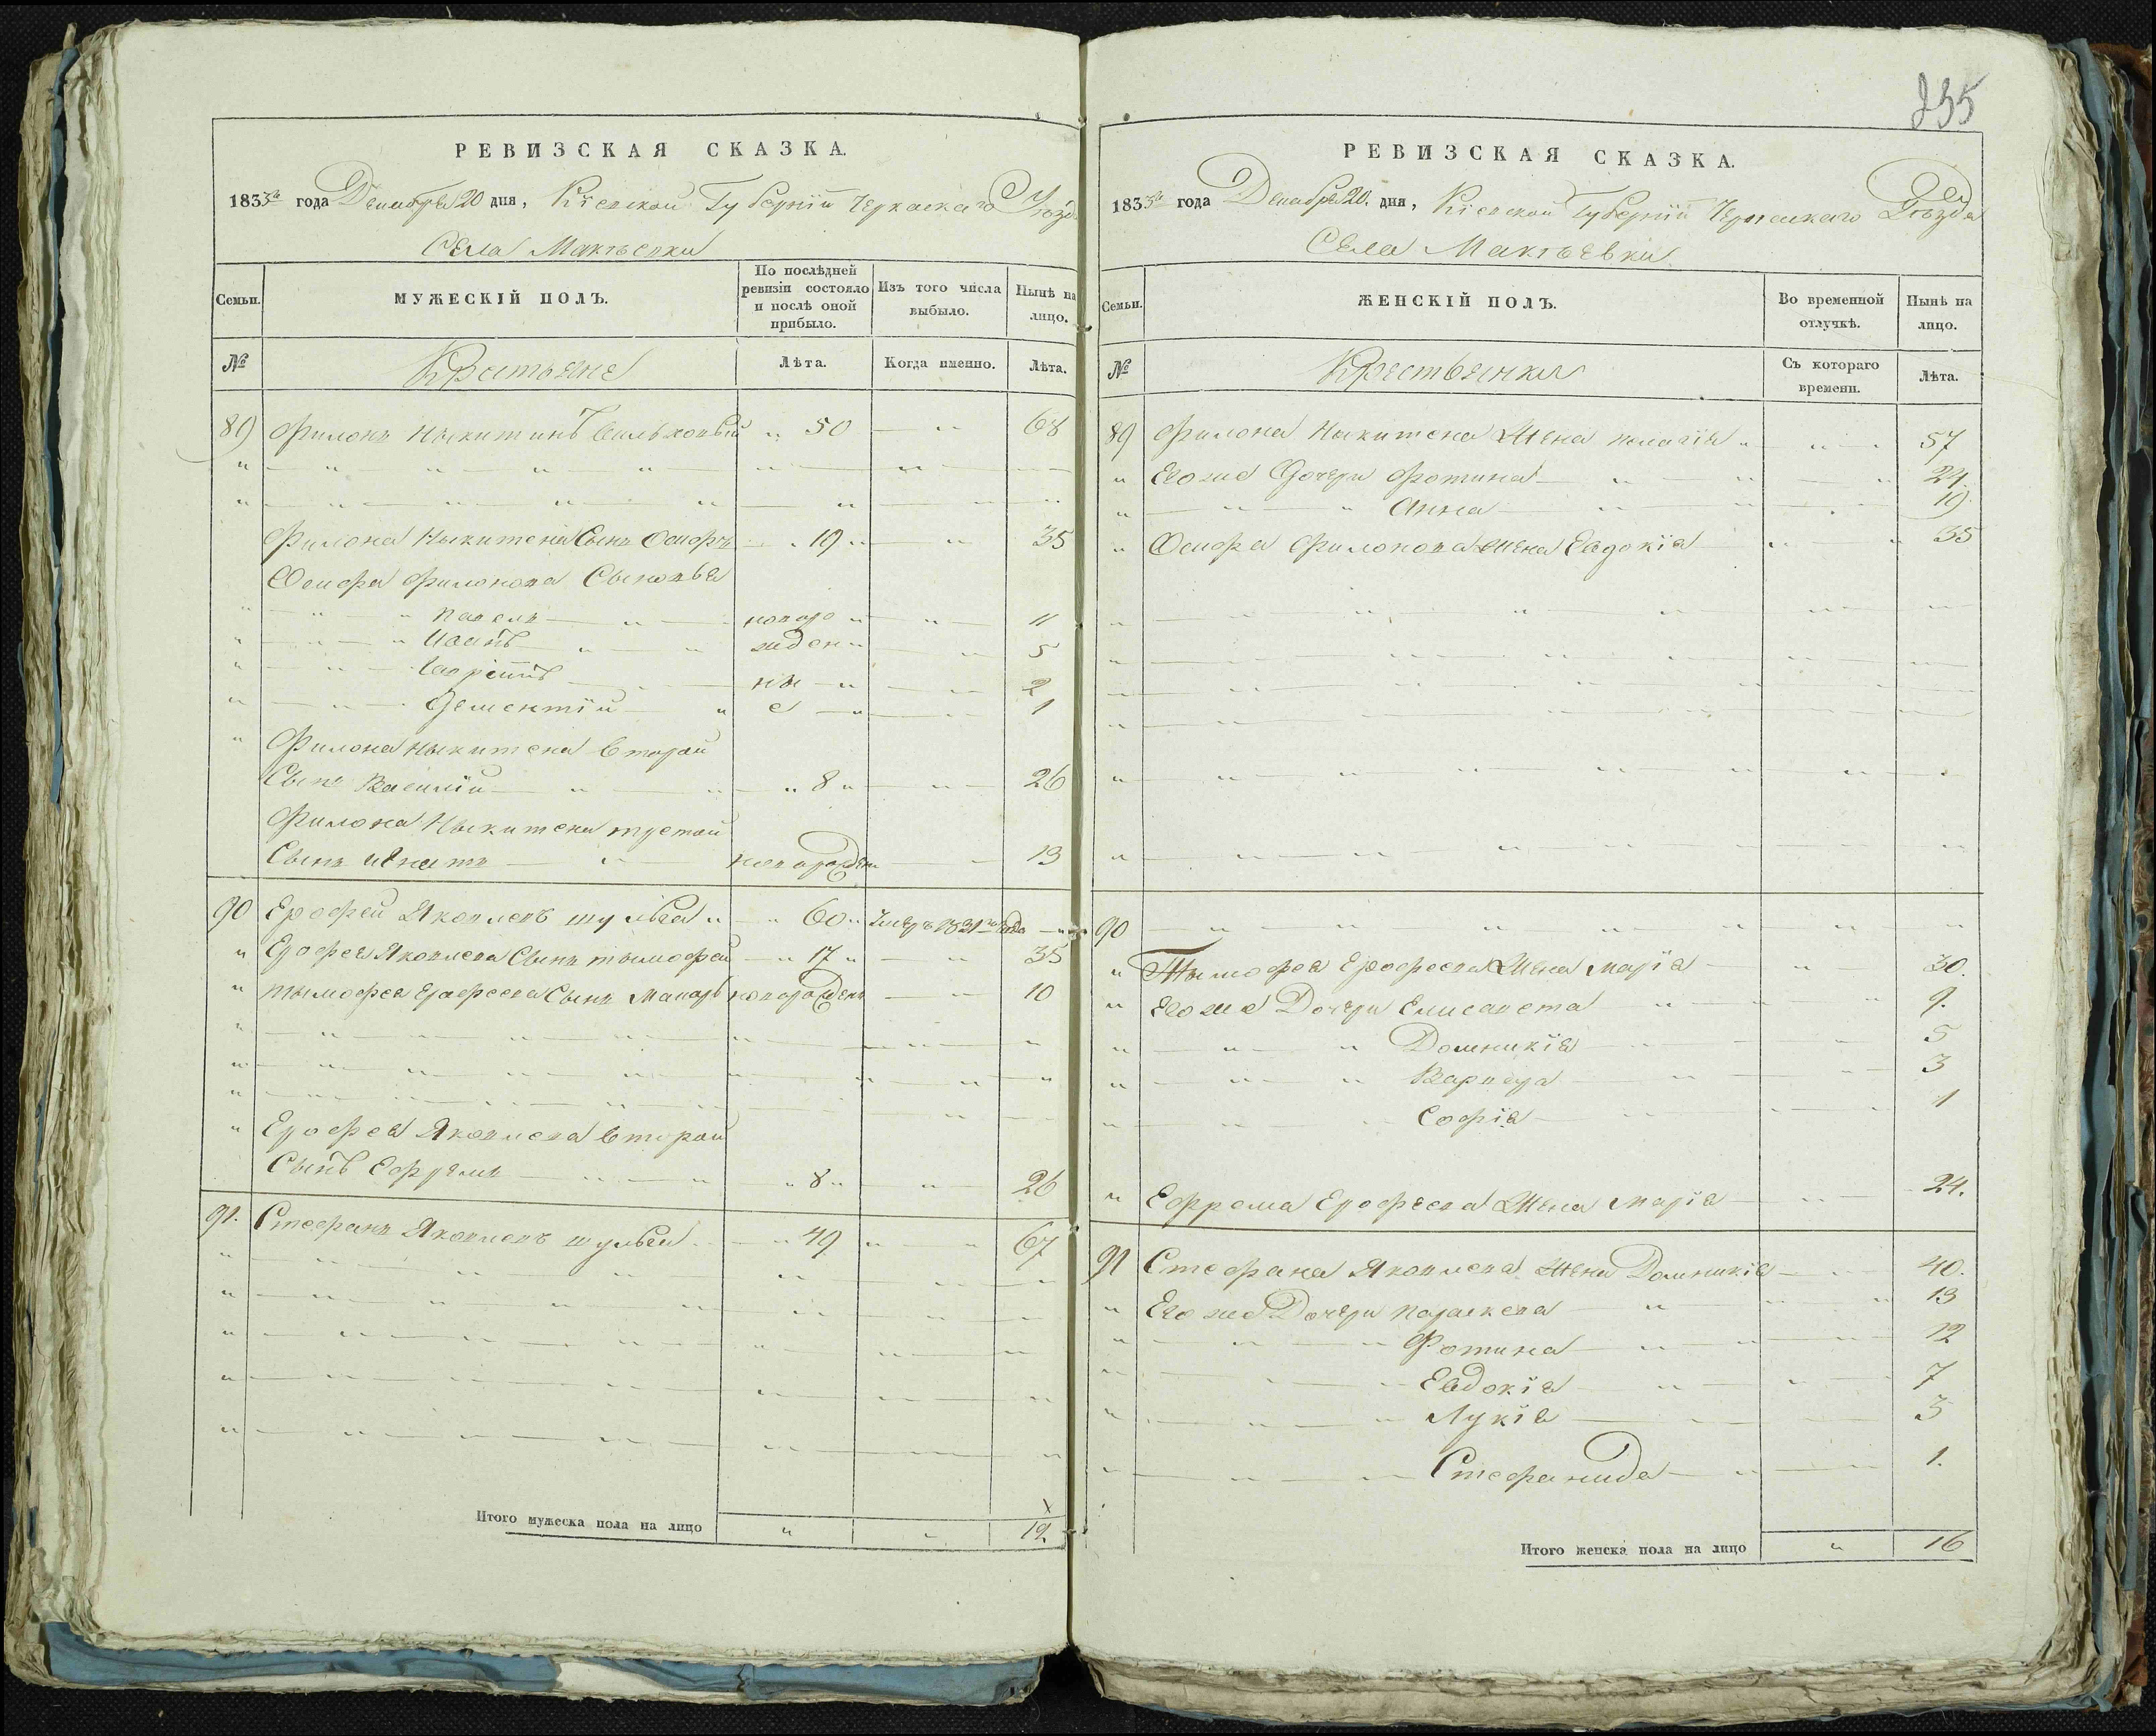 РЕВИЗСКАЯ СКАЗКА.
1833го года Декабря 20 дня, Кіевской Губерніи Черкаскаго Уѣзда
Села Макѣевки
Семьи. МУЖЕСКІЙ ПОЛЪ. По послѣдней ревизіи состояло и послѣ оной прибыло. Изъ того числа выбыло. Нынѣ на лицо.
№ Крестьяне Лѣта. Когда именно. Лѣта.
89 Филонъ Ныкитинъ " 50 — " 68
Филона Ныкитена Сынъ Осифъ — " 19 " — " 35
Осифа Филонова Сыновья
" — " — " Павелъ — " — новоро " — " 11
" — " — " Иванъ — " — " жден " — " 5
" — " — ны — " — " 2
" — " — Дементій — " е — " — 1
" Филона Ныкитена Второй
Сынъ Василій — " — " 8 " — " 26
Филона Ныкитена третой
Сынъ Игнатъ — " — новорожден — 13
90 Ерофей Яковлевъ шульга " — " 60 " Умеръ 1821го года — "
" Ерофея Яковлева Сынъ тымофей — " 17 " — " 35
" тымофея Ерофеева Сынъ Макаръ новорожден — " 10
" Ерофея Яковлева Второй
Сынъ Ефремъ — " — " 8 " — " 26
91. Стефанъ Яковлевъ шульга — " 49 " — " 67
Итого мужеска пола на лицо " " 12
235
РЕВИЗСКАЯ СКАЗКА.
1833го года Декабря 20. дня, Кіевской Губерніи Черкаскаго Уѣзда
Села Макѣевки
Семьи. ЖЕНСКІЙ ПОЛЪ. Во временной отлучкѣ. Нынѣ на лицо.
№ Крестьянки Съ котораго времени. Лѣта.
89 Филона Ныкитена Жена пелагія " — " — 57
" Его же Дочери Фотина — " — " — " 24.
" — " — " Анна — " — " 19.
" Осифа Филонова Жена Евдокія " — " 35
90 — " — " — " — "
" Тымофея Ерофеева Жена Марія — " — 30.
" Его же Дочери Елисавета — " — " — " 9.
" — " — " Домникія — " — " 5
" — " — " Варвара — " — " 3
" — " — " Софія — " — " 1
" Ефрема Ерофеева Жена Марія — " — 24.
91 Стефана Яковлева Жена Домникія — " — 40.
" Его же Дочери параскева — " — " — " 13
" — " — " Фотина — " — " — " 12
" — " — " Евдокія — " — " — 7
" — " — " Лукія — " — 3
" — " — " Стефанида — " — " 1.
Итого женска пола на лицо " 16